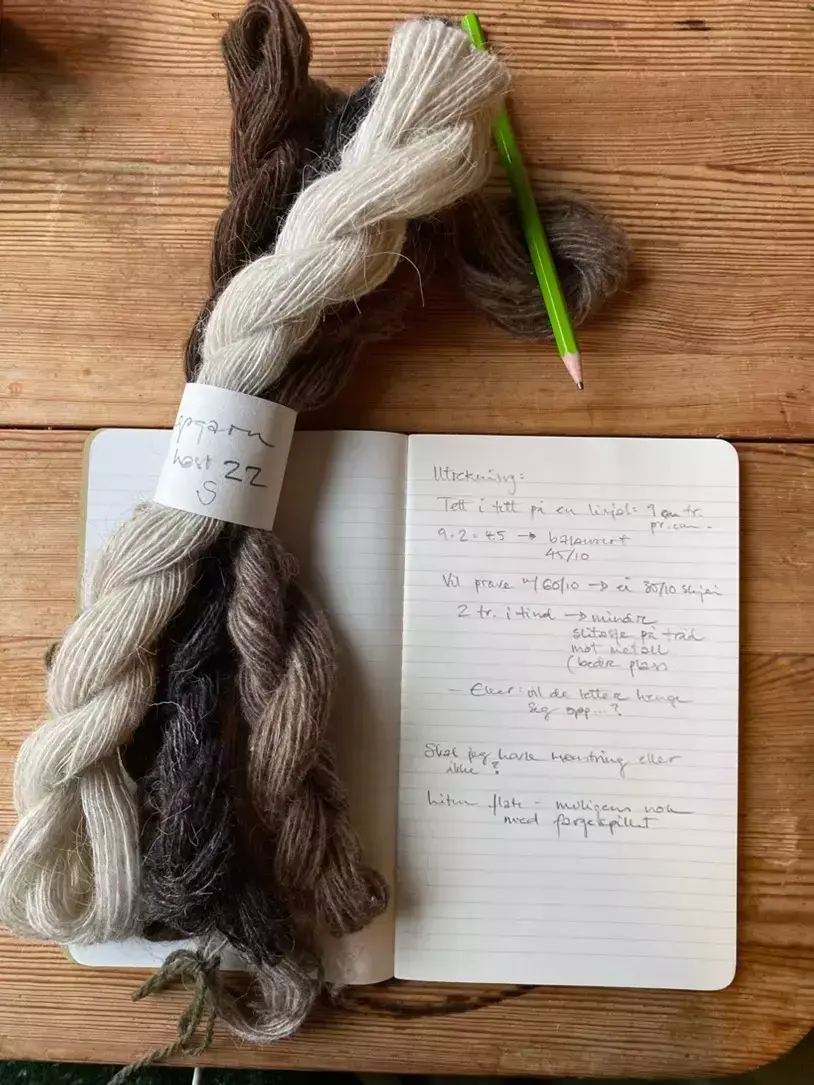 høst 22
S
Utrekning:
Tett i tett på en linjal = 9 tr.
pr. cm.
9:2 = 4.5 → balansert
45/10
Vil prøve m/60/10 → ei 30/10 skjei
2 tr. i tind → mindre
slitasje på tråd
mot metall
(bedre plass
- Eller: vil de lettere henge
seg opp...?
Skal jeg mønstring eller
ikke?
Liten flate - muligens nok
med fargespillet